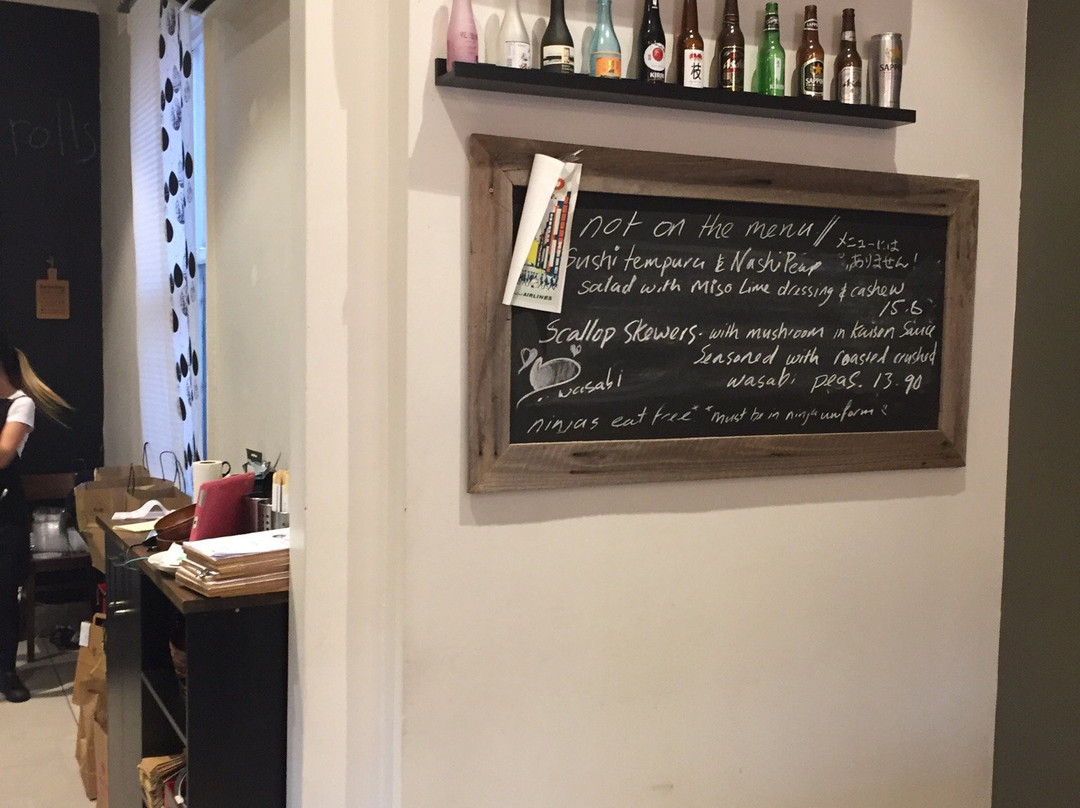 KIRIN
枝
Asahi
SAPPORO
Asahi
SAPPORO
rolls
not on the menu//
メニューには
ありません!
Sushi tempura & Nashi Pear
Salad with Miso Lime dressing & cashew
15.5
Scallop Skewers - with mushroom in Kaisen Sauce
Seasoned with roasted crushed
wasabi peas. 13.90
wasabi
ninjas eat free* *must be in ninja uniform
AIRLINES